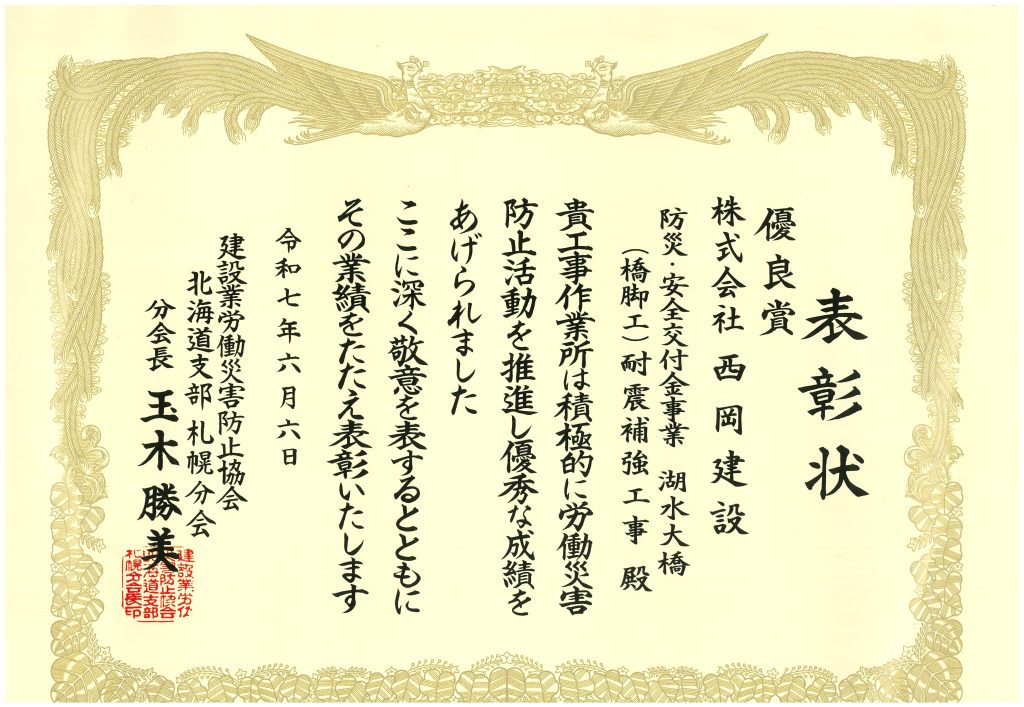 表彰状
優良賞
株式会社 西岡建設
防災・安全交付金事業 湖水大橋
（橋脚工）耐震補強工事 殿
貴工事作業所は積極的に労働災害
防止活動を推進し優秀な成績を
あげられました
ここに深く敬意を表するとともに
その業績をたたえ表彰いたします
令和七年六月六日
建設業労働災害防止協会
北海道支部 札幌分会
分会長 玉木勝美